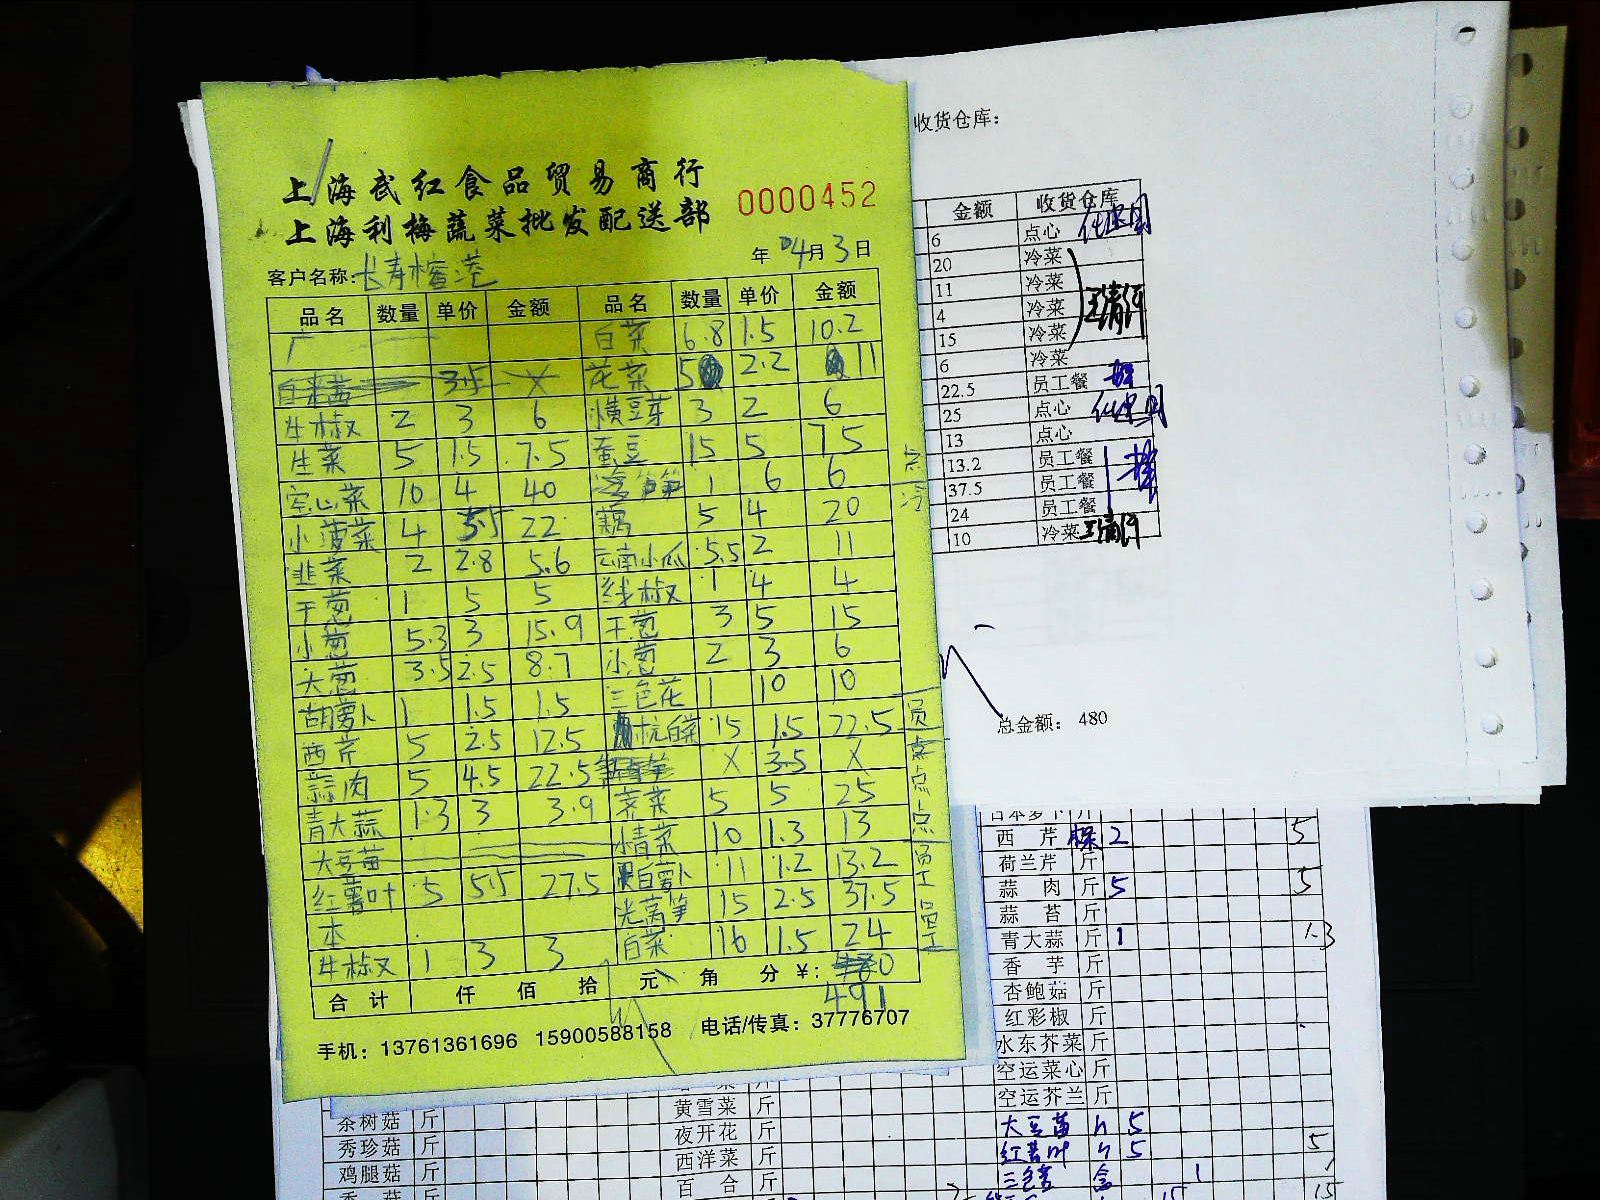 上海武红食品贸易商行
上海利梅蔬菜批发配送部
0000452
年 04月3日
客户名称:
品名 数量 单价 金额 品名 数量 单价 金额
白菜 6.8 1.5 10.2
3.5 X 花菜 5 2.2 11
牛椒 2 3 6 黄豆芽 3 2 6
生菜 5 1.5 7.5 蚕豆 15 5 75
空心菜 10 4 40 1 6 6
小菠菜 4 5.5 22 藕 5 4 20
韭菜 2 2.8 5.6 云南小瓜 5.5 2 11
干葱 1 5 5 线椒 1 4 4
小葱 5.3 3 15.9 干葱 3 5 15
大葱 3.5 2.5 8.7 小葱 2 3 6
胡萝卜 1 1.5 1.5 三色花 1 10 10
西芹 5 2.5 12.5 杭白菜 15 1.5 22.5
蒜肉 5 4.5 22.5 X 3.5 X
青大蒜 1.3 3 3.9 荠菜 5 5 25
大豆苗 10 1.3 13
红薯叶 5 5.5 27.5 白萝卜 11 1.2 13.2
本 光莴笋 15 2.5 37.5
牛椒 1 3 3 白菜 16 1.5 24
合计 仟 佰 拾 元 角 分 ¥: 480
491
手机: 13761361696 15900588158 电话/传真: 37776707
点
冷
员
点
点
点
员工
员工
收货仓库:
金额 收货仓库
6 点心
20 冷菜
11 冷菜
4 冷菜
15 冷菜
6 冷菜
22.5 员工餐
25 点心
13 点心
13.2 员工餐
37.5 员工餐
24 员工餐
10 冷菜
总金额: 480
日本萝卜 斤
西芹 2 5
荷兰芹 斤
蒜肉 斤 5 5
蒜苔 斤
青大蒜 斤 1 1.3
香芋 斤
杏鲍菇 斤
红彩椒 斤
水东芥菜 斤
空运菜心 斤
空运芥兰 斤
大豆苗 5
红薯叶 5 5
1 1
15 15
茶树菇 斤
秀珍菇 斤
鸡腿菇 斤
香菇 斤
菜 斤
黄雪菜 斤
夜开花 斤
西洋菜 斤
百合 斤